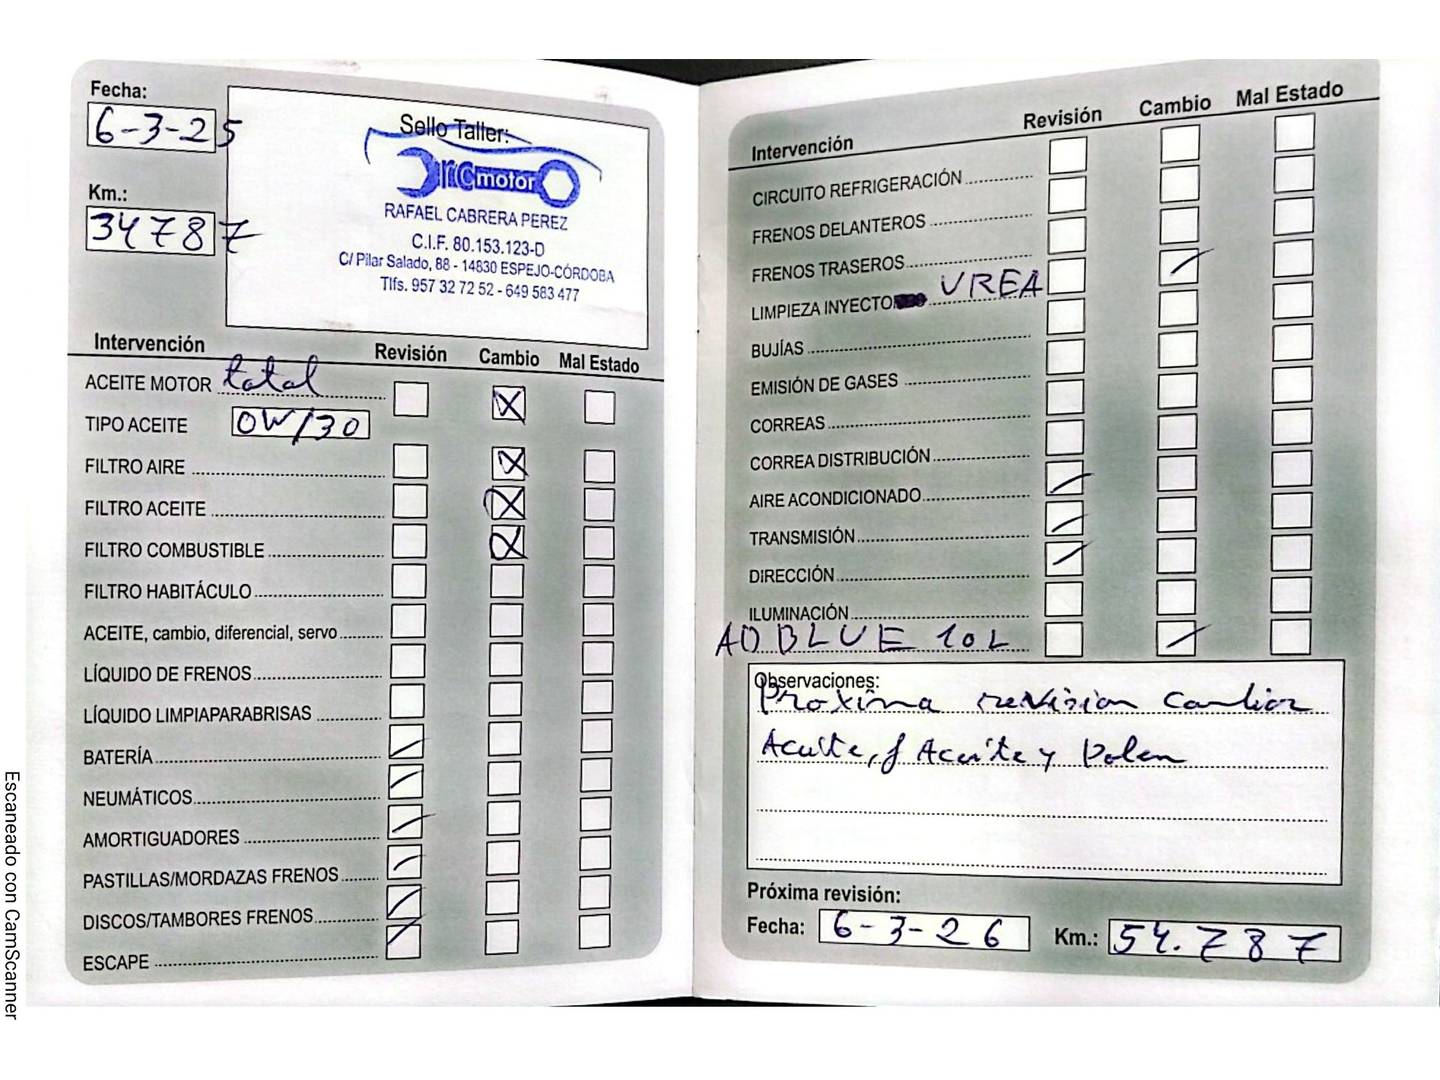 Fecha:
6-3-25
Sello Taller:
rcmotor
RAFAEL CABRERA PEREZ
C.I.F. 80.153.123-D
C/ Pilar Salado, 88 - 14830 ESPEJO-CÓRDOBA
Tlfs. 957 32 72 52 - 649 583 477
Km.:
34787
Intervención Revisión Cambio Mal Estado
ACEITE MOTOR total
TIPO ACEITE 0W/30
FILTRO AIRE
FILTRO ACEITE
FILTRO COMBUSTIBLE
FILTRO HABITÁCULO
ACEITE, cambio, diferencial, servo
LÍQUIDO DE FRENOS
LÍQUIDO LIMPIAPARABRISAS
BATERÍA
NEUMÁTICOS
AMORTIGUADORES
PASTILLAS/MORDAZAS FRENOS
DISCOS/TAMBORES FRENOS
ESCAPE
Intervención Revisión Cambio Mal Estado
CIRCUITO REFRIGERACIÓN
FRENOS DELANTEROS
FRENOS TRASEROS
LIMPIEZA INYECTO UREA
BUJÍAS
EMISIÓN DE GASES
CORREAS
CORREA DISTRIBUCIÓN
AIRE ACONDICIONADO
TRANSMISIÓN
DIRECCIÓN
ILUMINACIÓN
AD BLUE 10L
Observaciones:
Proxima revision cambiar
Aceite, f Aceite y Polen
Próxima revisión:
Fecha: 6-3-26 Km.: 54.787
Escaneado con CamScanner